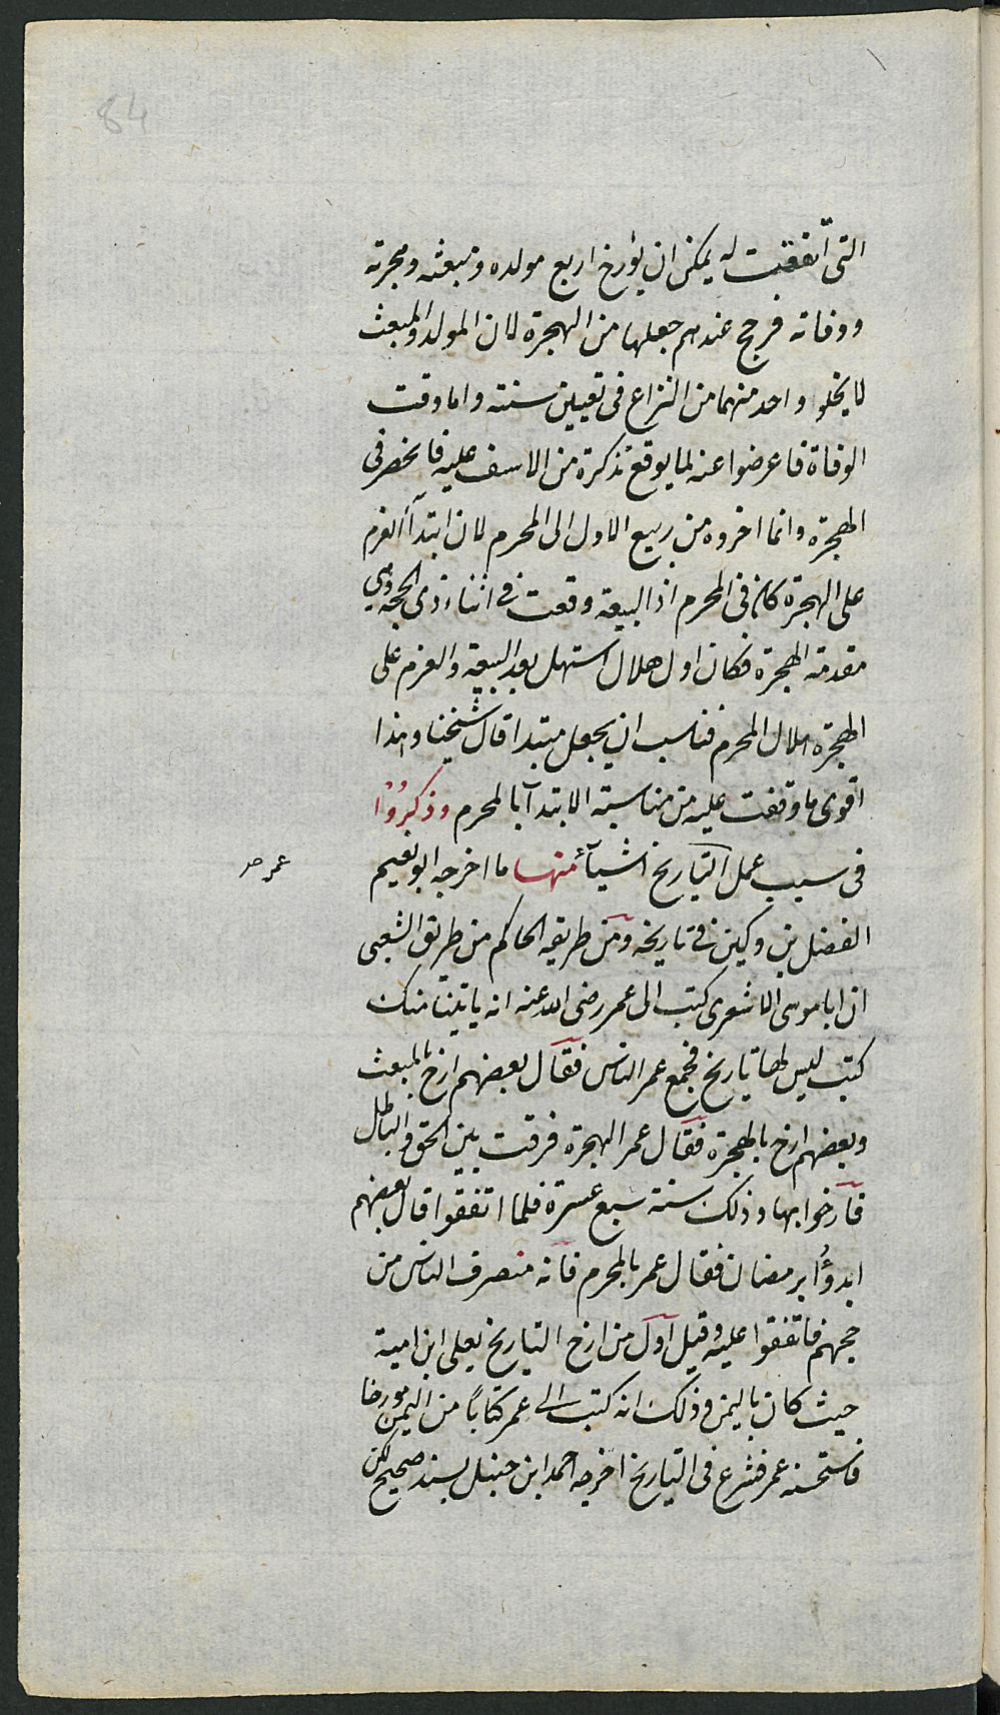 84
التى اتفقت له يمكن ان يؤرخ اربع مولده ومبعثه وهجرته
ووفاته فرجح عندهم جعلها من الهجرة لان المولد والمبعث
لا يخلو واحد منهما من النزاع فى تعيين سنته واما وقت
الوفاة فاعرضوا عنه لما يوقع تذكرة من الاسف عليه فانحصر فى
الهجرة وانما اخروه من ربيع الاول الى المحرم لان ابتدآ العزم
على الهجرة كان فى المحرم اذ البيعة وقعت فى اثناء ذى الحجة وهي
مقدمة الهجرة فكان اول هلال استهل بعد البيعة والعزم على
الهجرة هلال المحرم فناسب ان يجعل مبتدا قال شيخنا وهذا
اقوى ما وقفت عليه من مناسبة الابتدآ بالمحرم وذكروا
فى سبب عمل التاريخ اشيآء منها ما اخرجه ابو نعيم
عمر صر
الفضل بن وكين فى تاريخه ومن طريقه الحاكم من طريق الشعبى
ان ابا موسى الاشعرى كتب الى عمر رضى الله عنه انه ياتينا منك
كتب ليس لها تاريخ فجمع عمر الناس فقال بعضهم ارخ بالمبعث
وبعضهم ارخ بالهجرة فقال عمر الهجرة فرقت بين الحق والباطل
فآرخوا بها وذلك سنة سبع عسرة فلما اتفقوا قال بعضهم
ابدؤا برمضان فقال عمر بالمحرم فانه منصرف الناس من
حجهم فاتفقوا عليه وقيل اول من ارخ التاريخ يعلى ابن امية
حيث كان باليمن وذلك انه كتب الى عمر كتابا من اليمن مورخا
فاستحسنه عمر فشرع فى التاريخ اخرجه احمد ابن حنبل بسند صحيح لكن